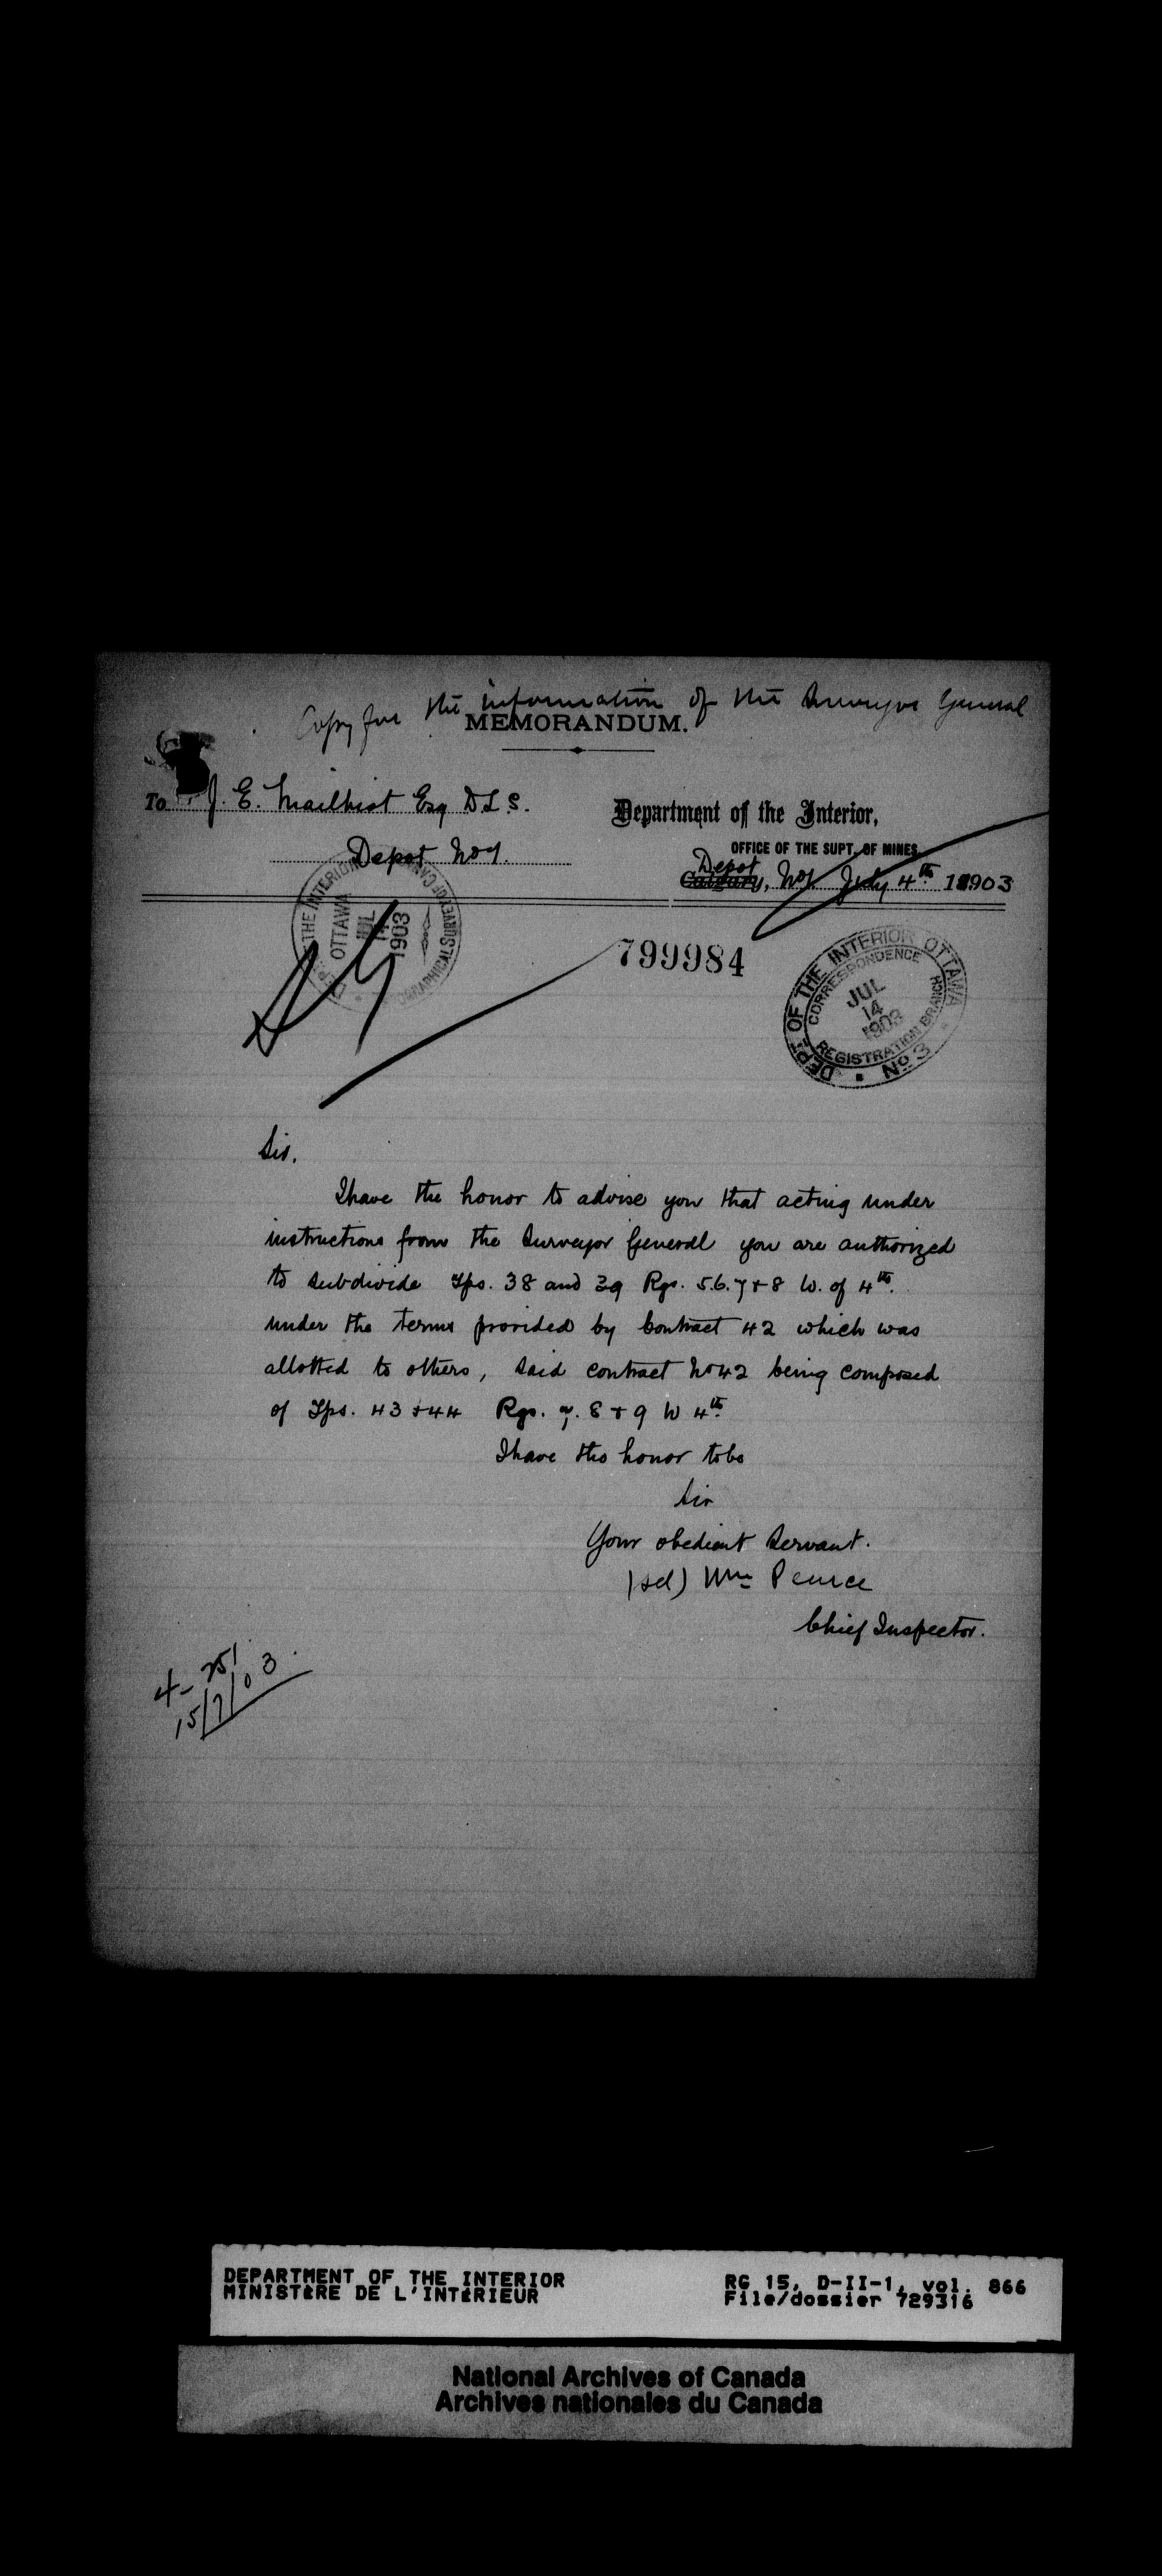 Copy for the information of the Surveyor General
MEMORANDUM.
To J. E. Mailhiot Esq D.L.S.
Depot No 1.
Department of the Interior,
OFFICE OF THE SUPT. OF MINES,
Depot
Calgary, No 1. July 4th 1903
DEPT. OF THE INTERIOR
OTTAWA
JUL
1903
799984
DEPT. OF THE INTERIOR OTTAWA
CORRESPONDENCE
JUL
14
1903
REGISTRATION BRANCH
No 3
Sir.
I have the honor to advise you that acting under
instructions from the Surveyor General you are authorized
to subdivide Tps. 38 and 39 Rgs. 5.6.7+8 W. of 4th.
under the terms provided by Contract 42 which was
allotted to others, said contract No 42 being composed
of Tps. 43+44 Rgs. 7. 8+9 W 4th.
I have the honor to be
Sir
Your obedient servant.
(sd) Wm Pearce
Chief Inspector.
15/7/03.
DEPARTMENT OF THE INTERIOR
MINISTÈRE DE L'INTÉRIEUR
RG 15, D-II-1, vol. 866
File/dossier 729316
National Archives of Canada
Archives nationales du Canada